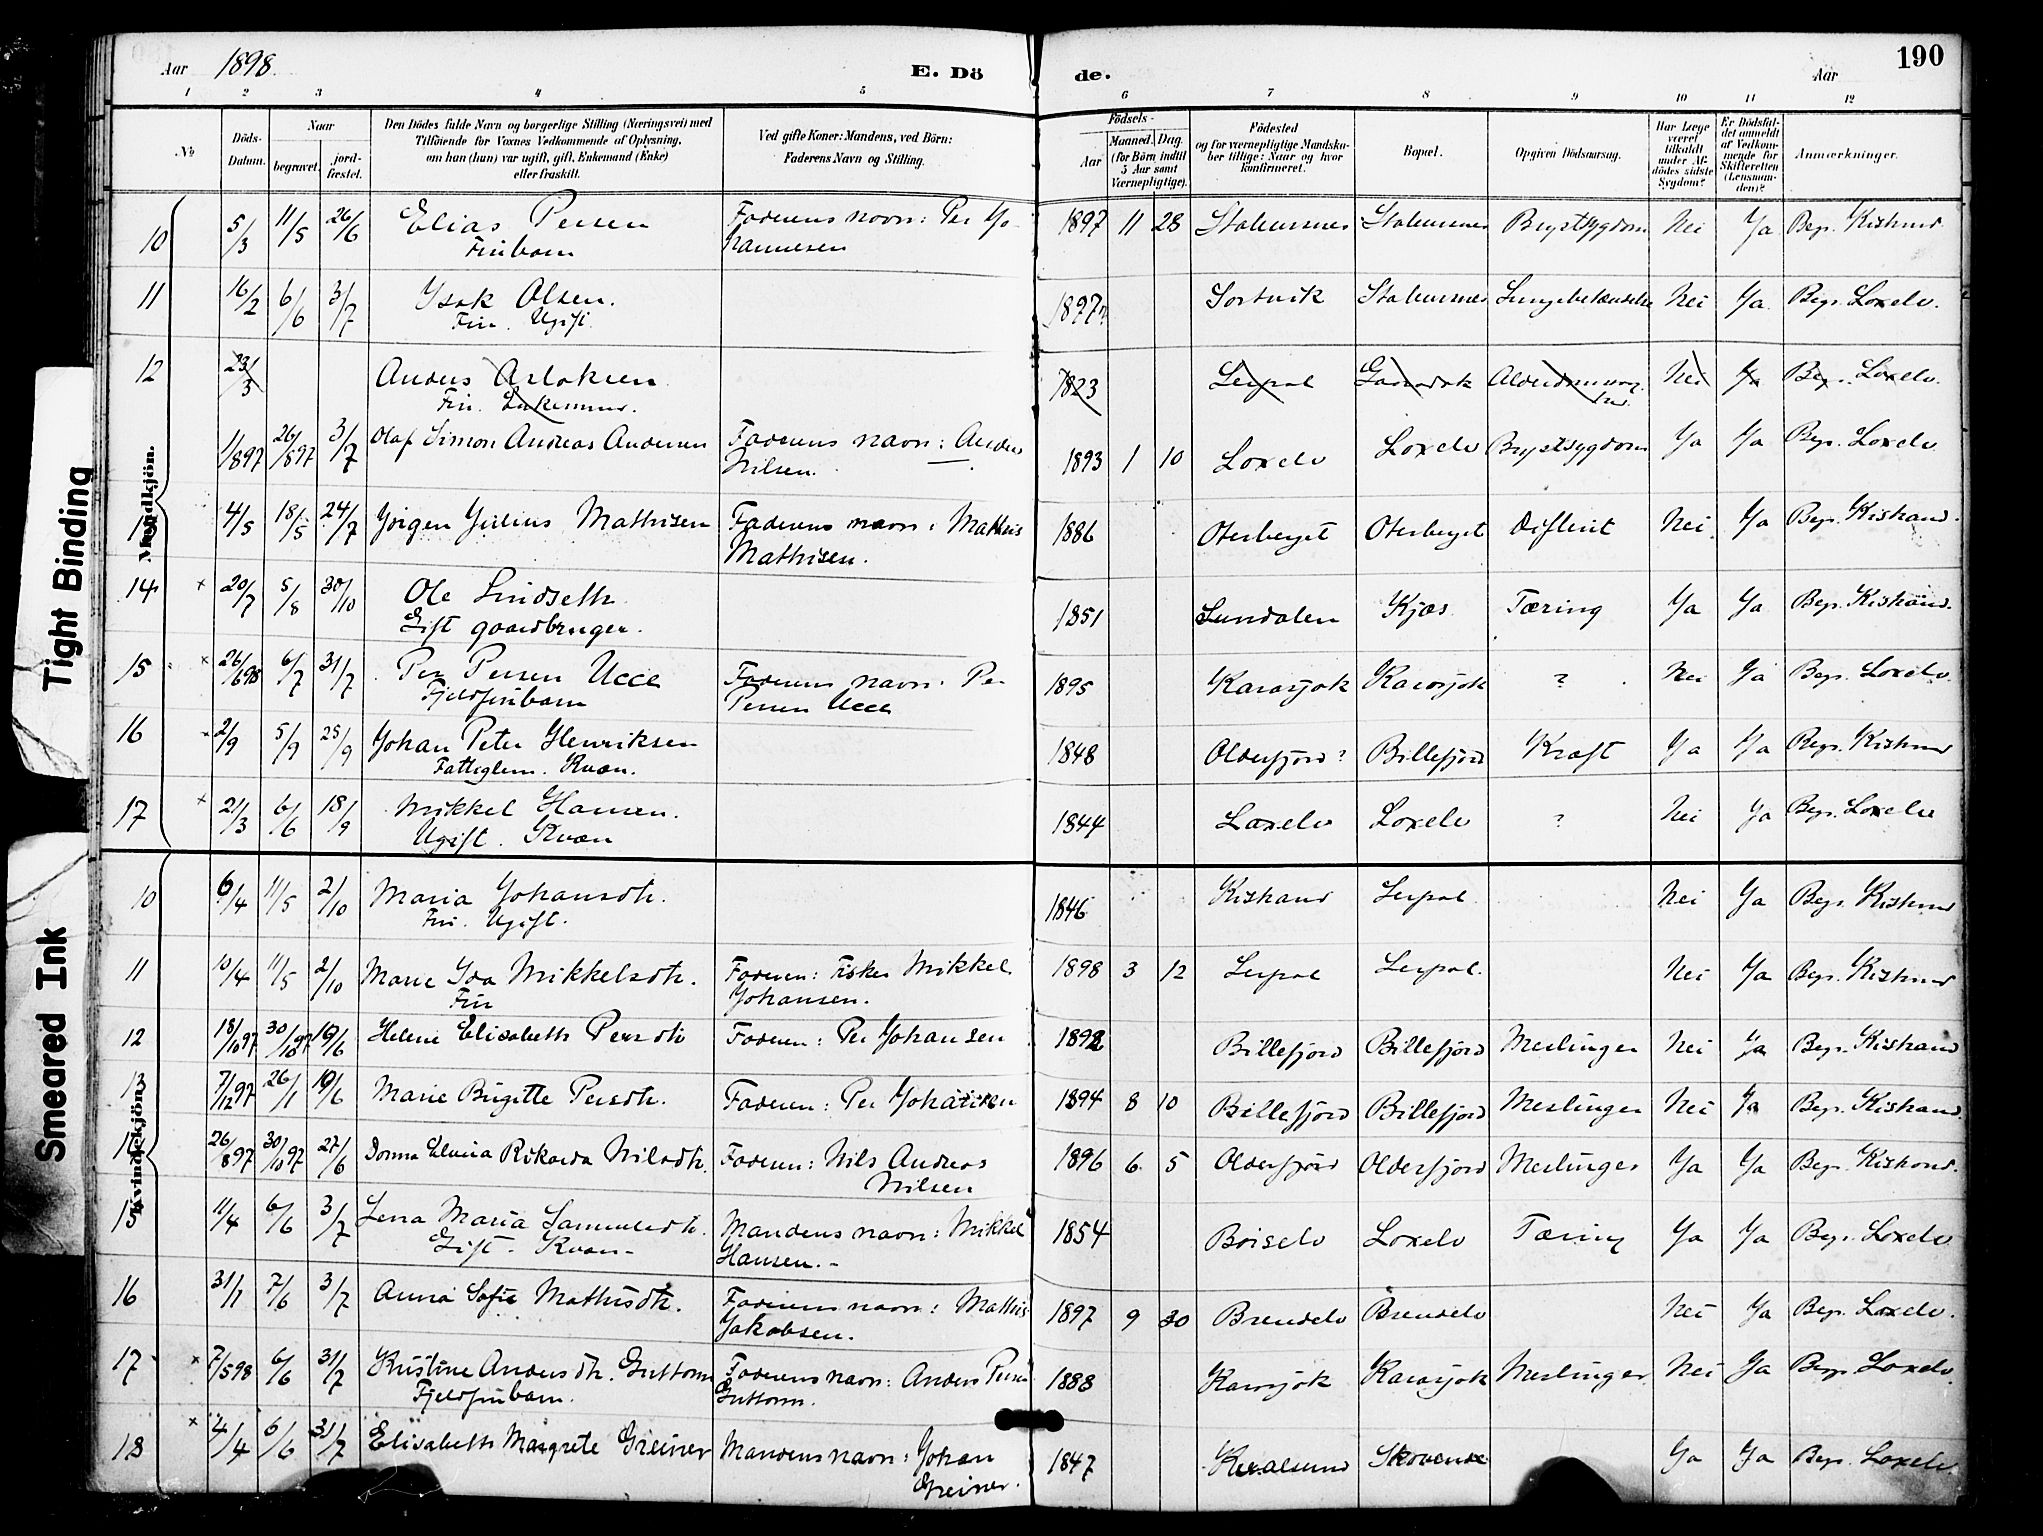 Aar 1898. E. Dö de. Aar 190
1 2 3 4 5 6 7 8 9 10 11 12
No
Döds-Datum.
Naar begravet. jord-fæstet.
Den Dödes fulde Navn og borgerlige Stilling (Næringsvei) med
Tilföiende for Voxnes Vedkommende af Oplysning,
om han (hun) var ugift, gift, Enkemand (Enke)
eller fraskilt.
Ved gifte Koner: Mandens, ved Börn:
Faderens Navn og Stilling.
Födsels-
Aar Maaned. Dag.
(for Börn indtil
5 Aar samt
Værnepligtige).
Födested
og for værnepligtige Mandska-
ber tillige: Naar og hvor
konfirmeret.
Bopæl.
Opgiven Dödsaarsag.
Har Læge
været
tilkaldt
under Af-
dödes sidste
Sygdom?
Er Dödsfal-
det anmeldt
af Vedkom-
mende for
Skifteretten
(Lensman-
den)?
Anmærkninger.
Mandkjön.
10 5/3 11/5 26/6 Elias Persen Faderens navn: Per Jo- 1897 11 28 Stabursnes Stabursnes Brystsygdom Nei Ja Begr. Kistrand
Finbarn hannesen
11 16/2 6/6 3/7 Isak Olsen. 1897? Sortvik Stabursnes Lungebetændelse Nei Ja Begr. Laxelv.
Fin. Ugift.
12 23/3 Anders Aslaksen 1823 Leirpol Nei Ja Begr. Laxelv.
Fin. Enkemand.
1/897 26/897 3/7 Olaf Simon Andreas Andersen Faderens navn: Anders 1893 1 10 Laxelv Laxelv Brystsygdom Ja Ja Begr. Laxelv
Nilsen.
13 4/5 18/5 24/7 Jörgen Julius Mathisen Faderens navn: Mathis 1886 Oterberget Oterberget Difterit Nei Ja Begr. Kistrand.
Mathisen.
14 × 20/7 5/8 30/10 Ole Lindseth 1851 Lundalen Kjæs Tæring Ja Ja Begr. Kistrand.
Gift gaardbruger.
15 × 26/698 6/7 31/7 Per Persen Ucce Faderens navn: Per 1895 Karasjok Karasjok ? Nei Ja Begr. Laxelv.
Fjeldfinbarn Persen Ucce
16 × 2/9 5/9 25/9 Johan Peter Henriksen 1848 Olderfjord? Billefjord Kræft Ja Ja Begr. Kistrand
Fattiglem. Kvæn.
17 × 21/3 6/6 18/9 Mikkel Hansen. 1844 Laxelv Laxelv ? Nei Ja Begr. Laxelv
Ugift. Kvæn
Kvindekjön.
10 6/4 11/5 2/10 Maria Johansdtr. 1846 Kistrand Leirpol Nei Ja Begr. Kistrand
Fin. Ugift.
11 10/4 11/5 2/10 Marie Ida Mikkelsdtr. Faderen: Fisker Mikkel 1898 3 12 Leirpol Leirpol. Nei Ja Begr. Kistrand
Fin Johansen.
12 18/1097 30/1097 19/6 Helene Elisabeth Persdtr Faderen: Per Johansen 1892 Billefjord Billefjord Meslinger Nei Ja Begr. Kistrand
13 7/1297 26/1 19/6 Marie Brigitte Persdtr. Faderen: Per Johansen 1894 8 10 Billefjord Billefjord Meslinger Nei Ja Begr. Kistrand.
14 26/897 30/1097 27/6 Donna Elvira Rikarda Nilsdtr. Faderen: Nils Andreas 1896 6 5 Olderfjord Olderfjord Meslinger Ja Ja Begr. Kistrand.
Nilsen
15 11/4 6/6 3/7 Lena Maria Samuelsdtr. Mandens navn: Mikkel 1854 Börselv Laxelv Tæring Ja Ja Begr. Laxelv
Gift. Kvæn- Hansen.-
16 31/1 7/6 3/7 Anna Sofie Mathisdtr. Faderens navn: Mathis 1897 9 30 Brendelv Brendelv Nei Ja Begr. Laxelv.
Jakobsen.
17 × 7/598 6/6 31/7 Kristine Andersdtr. Guttorm Faderens navn: Anders Persen 1888 Karasjok Karasjok Meslinger Nei Ja Begr. Laxelv.
Fjeldfinbarn. Guttorm.
18 × 4/4 6/6 31/7 Elisabeth Margrete Greiner Mandens navn: Johan 1847 Kvalsund Ja Ja Begr. Laxelv.
Greiner.
Tight Binding
Smeared Ink